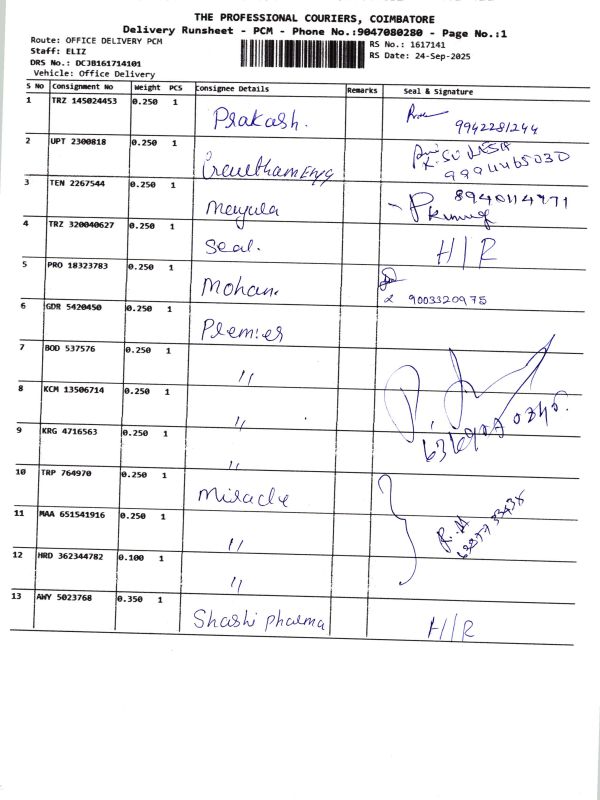 THE PROFESSIONAL COURIERS, COIMBATORE
Delivery Runsheet - PCM - Phone No.:9047080280 - Page No.:1
Route: OFFICE DELIVERY PCM
RS No.: 1617141
Staff: ELIZ
RS Date: 24-Sep-2025
DRS No.: DCJB161714101
Vehicle: Office Delivery
S No Consignment No Weight PCS Consignee Details Remarks Seal & Signature
1 TRZ 145024453 0.250 1 Prakash. 9942281244
2 UPT 2300818 0.250 1
3 TEN 2267544 0.250 1 8940114971
4 TRZ 320040627 0.250 1 Seal. H/R
5 PRO 18323783 0.250 1 Mohan. 9003320975
6 GDR 5420450 0.250 1 Premier
7 BOD 537576 0.250 1 "
8 KCM 13506714 0.250 1 "
9 KRG 4716563 0.250 1 "
10 TRP 764970 0.250 1 Miracle
11 MAA 651541916 0.250 1 " R.M
12 HRD 362344782 0.100 1 "
13 AWY 5023768 0.350 1 Shashi Pharma H/R